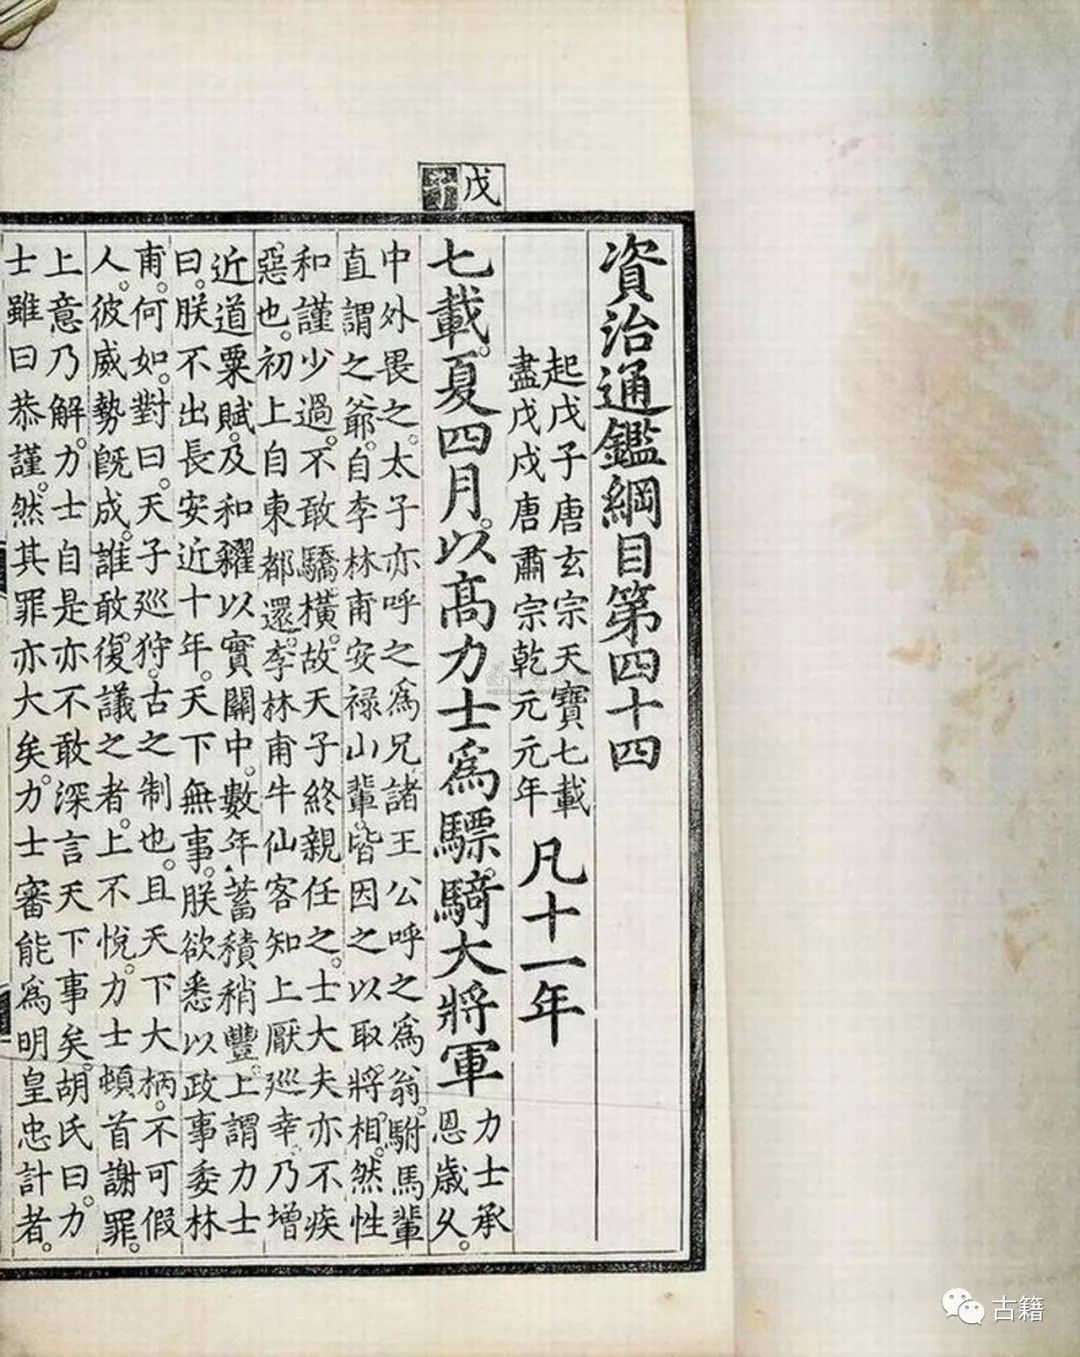 戊
資治通鑑綱目第四十四
起戊子唐玄宗天寶七載
盡戊戌唐肅宗乾元元年
凡十一年
七載。夏四月。以高力士爲驃騎大將軍
力士承
恩歲久。
中外畏之。太子亦呼之爲兄。諸王公呼之爲翁。駙馬輩
直謂之爺。自李林甫安祿山輩。皆因之以取將相。然性
和謹少過。不敢驕橫。故天子終親任之。士大夫亦不疾
惡也。初上自東都還。李林甫牛仙客知上厭巡幸。乃增
近道粟賦。及和糴以實關中。數年。蓄積稍豐。上謂力士
曰。朕不出長安近十年。天下無事。朕欲悉以政事委林
甫。何如。對曰。天子巡狩。古之制也。且天下大柄。不可假
人。彼威勢既成。誰敢復議之者。上不悅。力士頓首謝罪。
上意乃解。力士自是亦不敢深言天下事矣。胡氏曰。力
士雖曰恭謹。然其罪亦大矣。力士審能爲明皇忠計者。
古籍